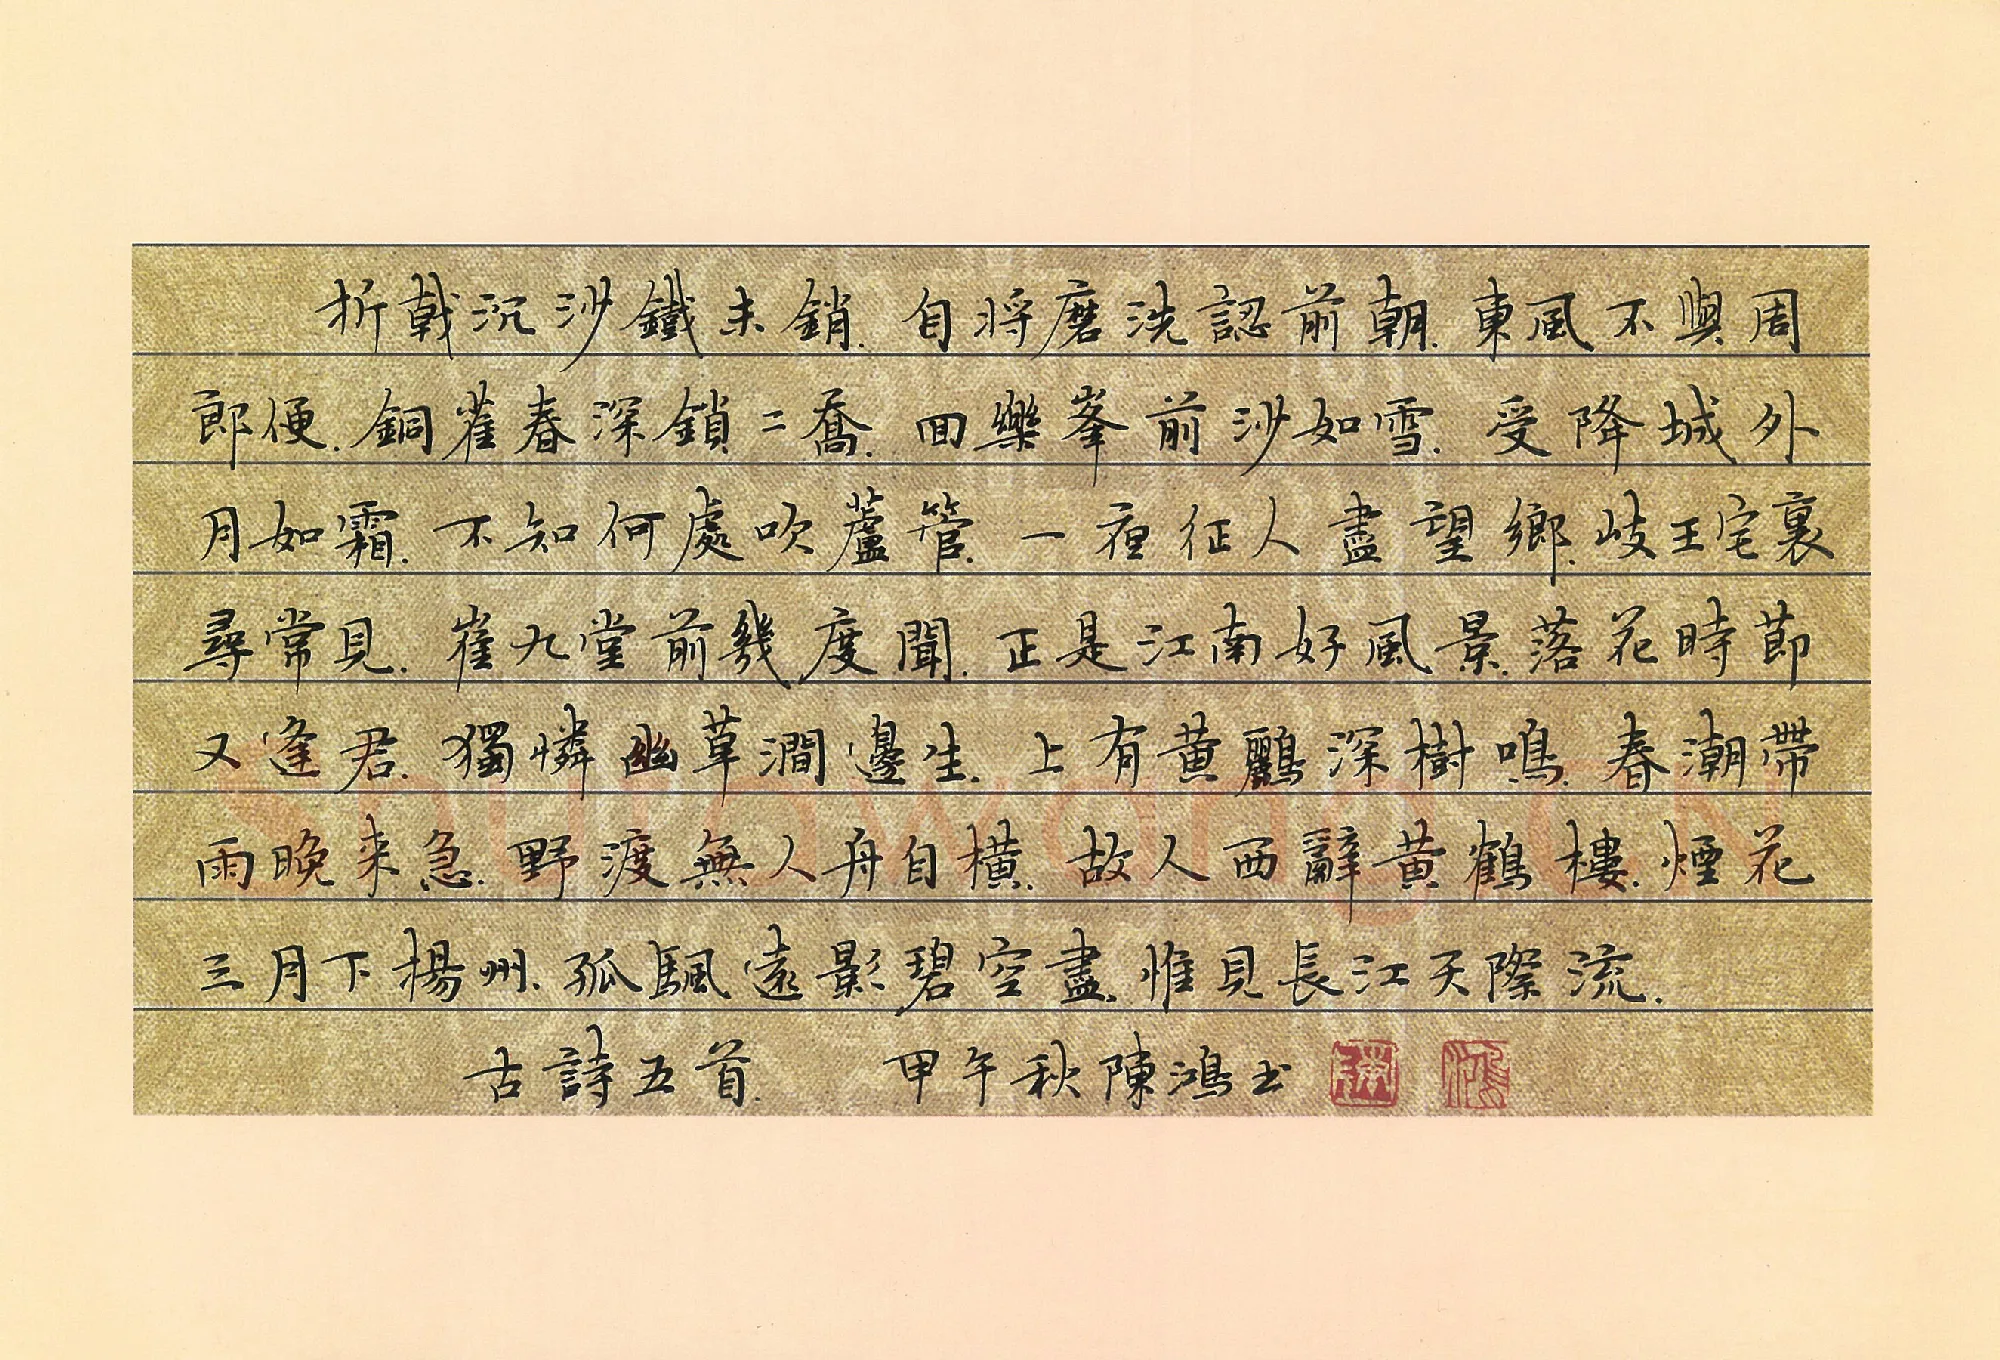 折戟沉沙鐵未銷.自將磨洗認前朝.東風不與周
郎便.銅雀春深鎖二喬.回樂峯前沙如雪.受降城外
月如霜.不知何處吹蘆管.一夜征人盡望鄉.岐王宅裏
尋常見.崔九堂前幾度聞.正是江南好風景.落花時節
又逢君.獨憐幽草澗邊生.上有黄鸝深樹鳴.春潮帶
雨晚来急.野渡無人舟自橫.故人西辭黄鶴樓.煙花
三月下楊州.孤颿遠影碧空盡.惟見長江天際流.
古詩五首. 甲午秋陳鴻书